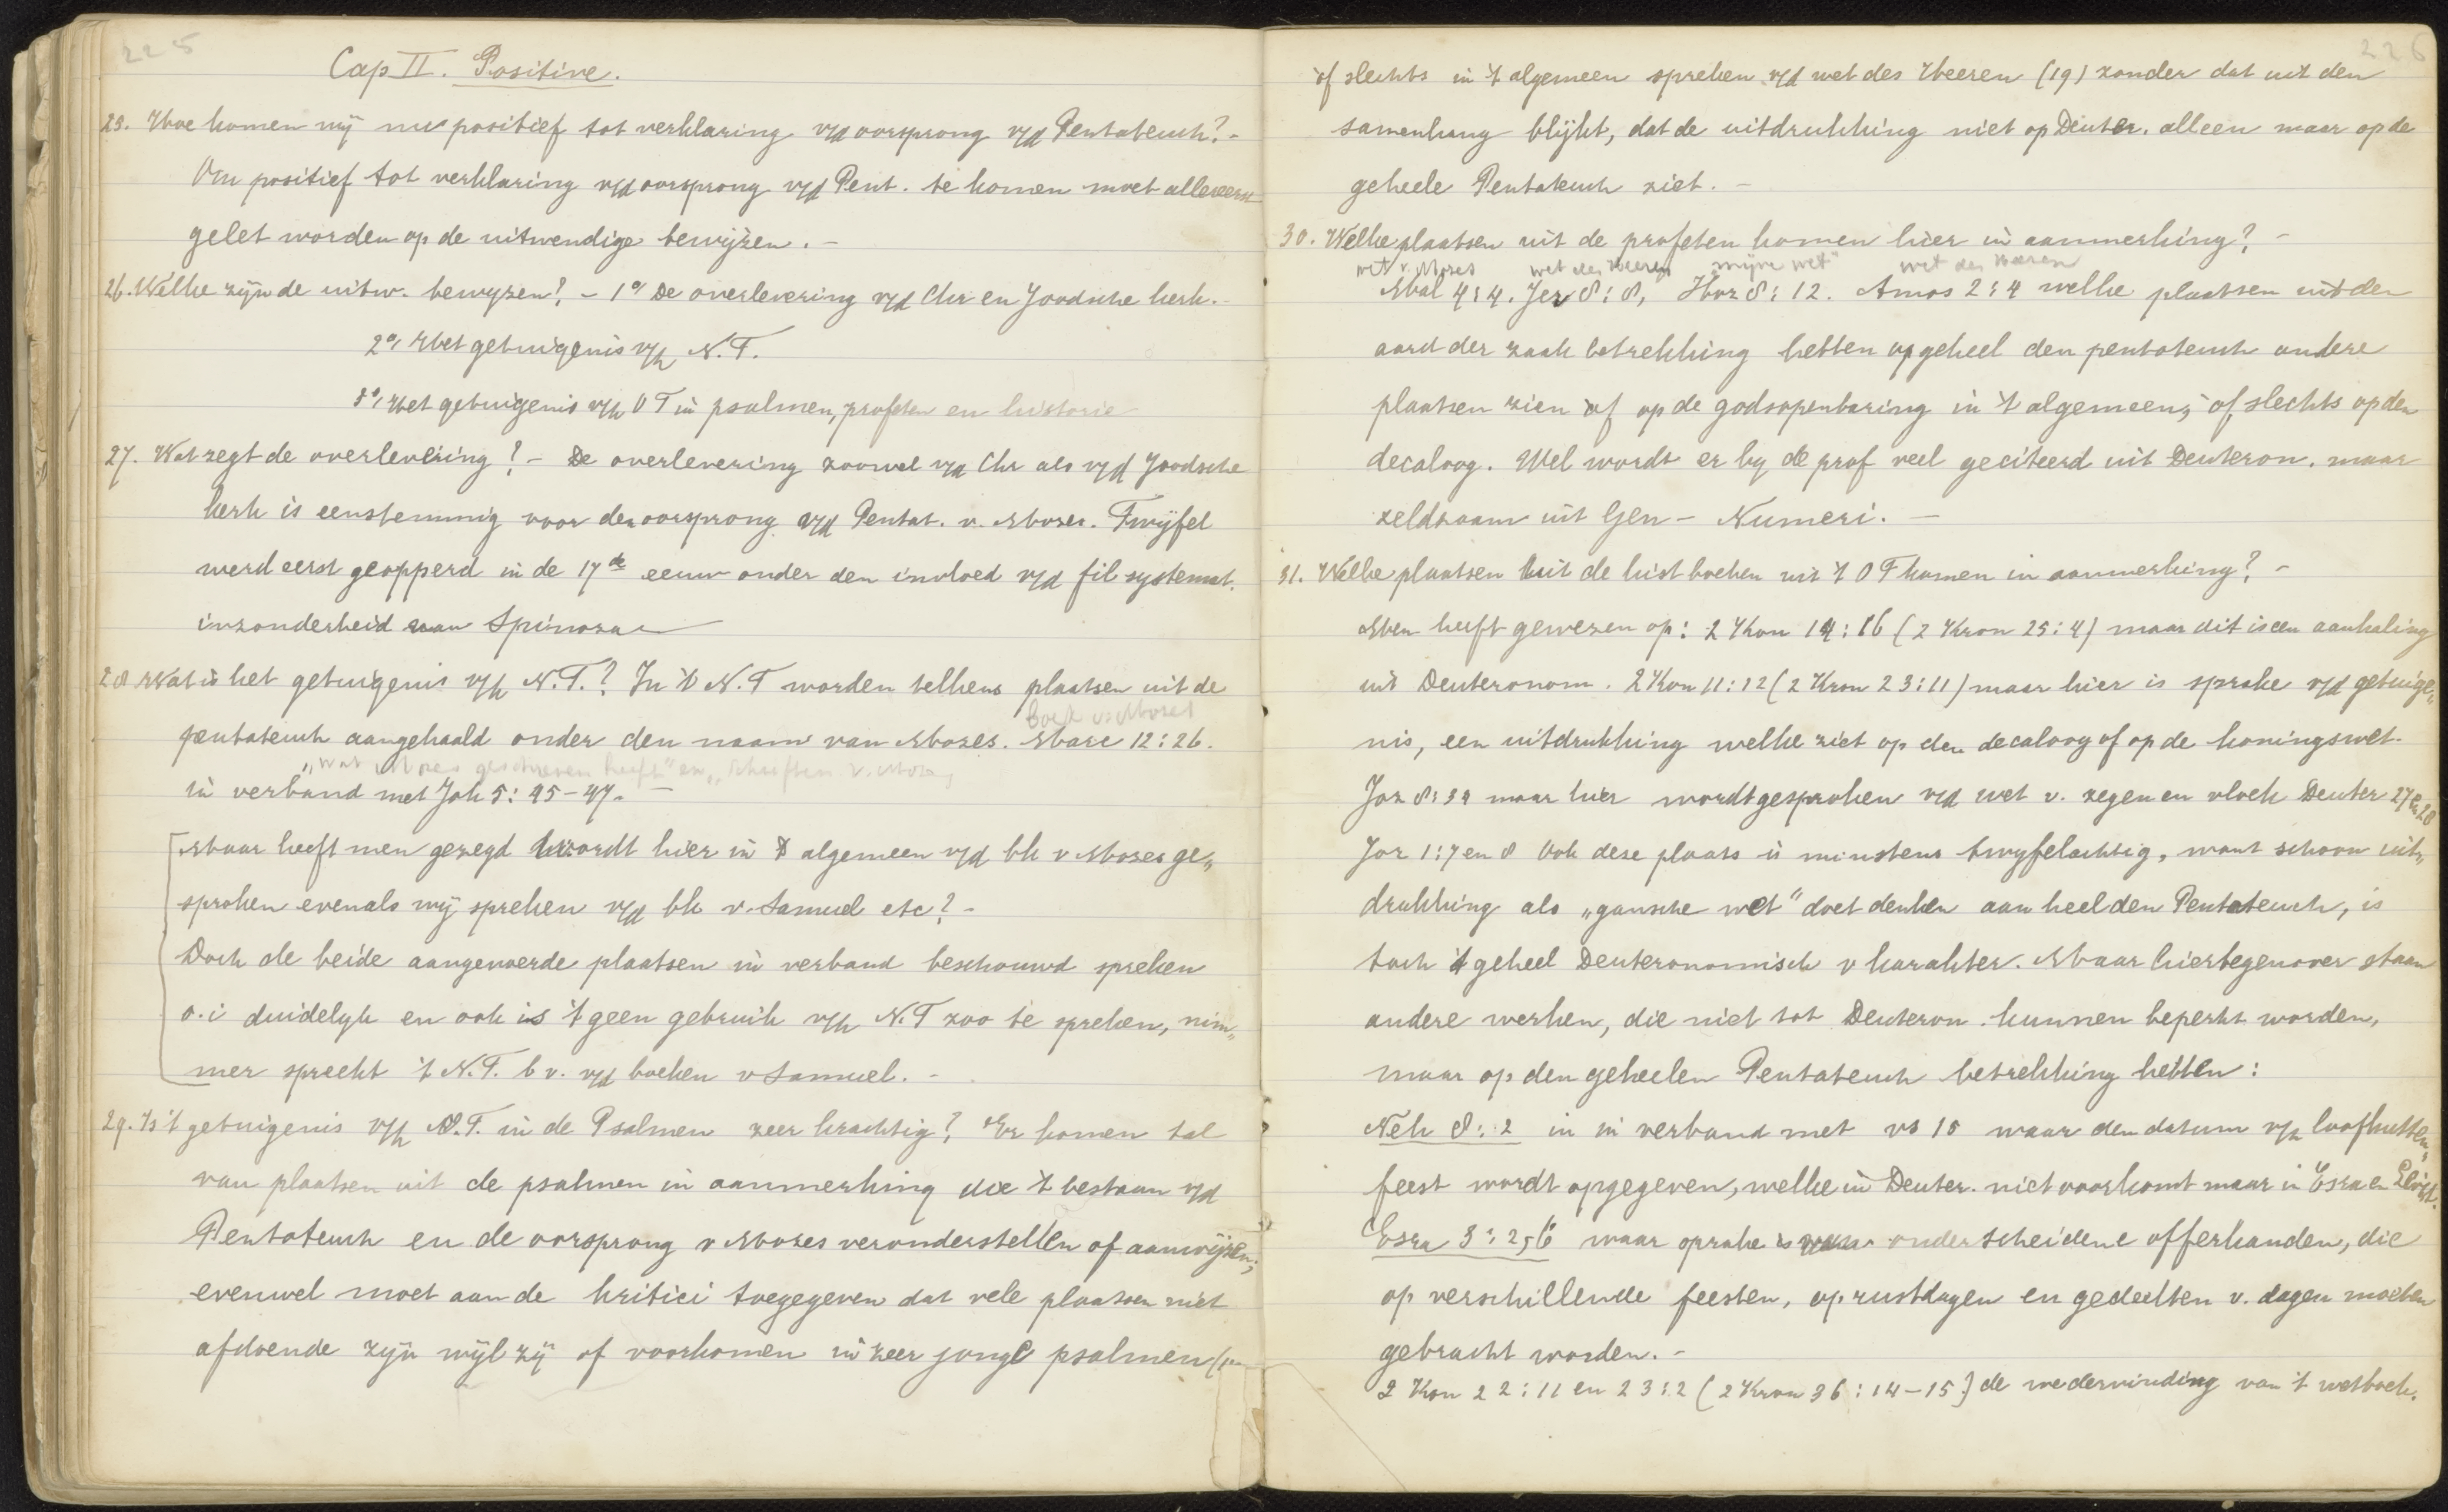 225
Cap II. Positive.
25. Hoe komen wij nu positief tot verklaring v/d oorsprong v/d Pentateuch? -
Om positief tot verklaring v/d oorsprong v/d Pent. te komen moet allereerst
gelet worden op de uitwendige bewijzen. -
26. Welke zijn de uitw. bewyzen? - 1º De overlevering v/d Chr en Joodsche kerk. -
2º, Het getuigenis v/h N.T.
3º, Het getuigenis v/h O T in psalmen, profeten en historie
27. Wat zegt de overlevering? - De overlevering zoowel v/d Chr als v/d Joodsche
kerk is eenstemmig voor den oorsprong v/d Pentat. v. Mozes. Twijfel
werd eerst geopperd in de 17de eeuw onder den invloed v/d fil systemat.
inzonderheid van Spinoza
28 Wat is het getuigenis v/h N.T.? In 't N.T worden telkens plaatsen uit de
boek v. Mozes
pentateuch aangehaald onder den naam van Mozes. Marc 12:26.
"wat Mozes geschreven heeft" en "Schriften v. Mozes
in verband met Joh 5:45-47. -
Maar heeft men gezegd wordt hier in 't algemeen v/d bk v Mozes ge„
sproken evenals wij spreken v/d bk v. Samuel etc? -
Doch de beide aangevoerde plaatsen in verband beschouwd spreken
o.i duidelyk en ook is 't geen gebruik v/h N.T zoo te spreken, nim„
mer spreekt 't N.T. bv. v/d boeken v Samuel. -
29. Is 't getuigenis v/h O.T. in de Psalmen zeer krachtig? Er komen tal
van plaatsen uit de psalmen in aanmerking die 't bestaan v/d
Pentateuch en de oorsprong v Mozes veronderstellen of aanwijzen;
evenwel moet aan de kritici toegegeven dat vele plaatsen niet
afdoende zyn wijl zij of voorkomen in zeer jonge psalmen
226
óf slechts in 't algemeen spreken v/d wet des Heeren (19) zonder dat uit den
samenhang blijkt, dat de uitdrukking niet op Deuter. alleen maar op de
geheele Pentateuch ziet. -
30. Welke plaatsen uit de profeten komen hier in aanmerking? -
wet v. Mozes wet des Heeren mijne wet" wet des Heeren
Mal 4:4. Jer 8:8, Hoz 8:12. Amos 2:4 welke plaatsen uit den
aard der zaak betrekking hebben op geheel den pentateuch andere
plaatsen zien óf op de godsopenbaring in 't algemeen, óf slechts op den
decaloog. Wel wordt er by de prof veel geciteerd uit Deuteron. maar
zeldzaam uit Gen - Numeri. -
31. Welke plaatsen uit de hist boeken uit 't O T komen in aanmerking? -
Men heeft gewezen op: 2 Kon 14:16 (2 Kron 25:4) maar dit is een aanhaling
uit Deuteronom. 2 Kon 11:12 (2 Kron 23:11) maar hier is sprake v/d getuige„
nis, een uitdrukking welke ziet op den decaloog of op de koningswet.
Joz 8:34 maar hier wordt gesproken v/d wet v. zegen en vloek Deuter 27 en 28
Joz 1:7 en 8 Ook deze plaats is minstens twyfelachtig, want schoon uit„
drukking als „gansche wet" doet denken aan heel den Pentateuch, is
toch 't geheel Deuteronomisch v karakter. Maar hiertegenover staan
andere werken, die niet tot Deuteron. kunnen beperkt worden,
maar op den geheelen Pentateuch betrekking hebben:
Neh 8:2 in in verband met vs 18 waar den datum v/h loofhutten„
feest wordt opgegeven, welke in Deuter. niet voorkomt maar in Esra en Levit.
Esra 3:2,6 waar sprake is van onderscheidene offerhanden, die
op verschillende feesten, op rustdagen en gedeelten v. dagen moeten
gebracht worden. -
2 Kon 22:11 en 23:2 (2 Kron 36:14-15) de wedervinding van 't wetboek.